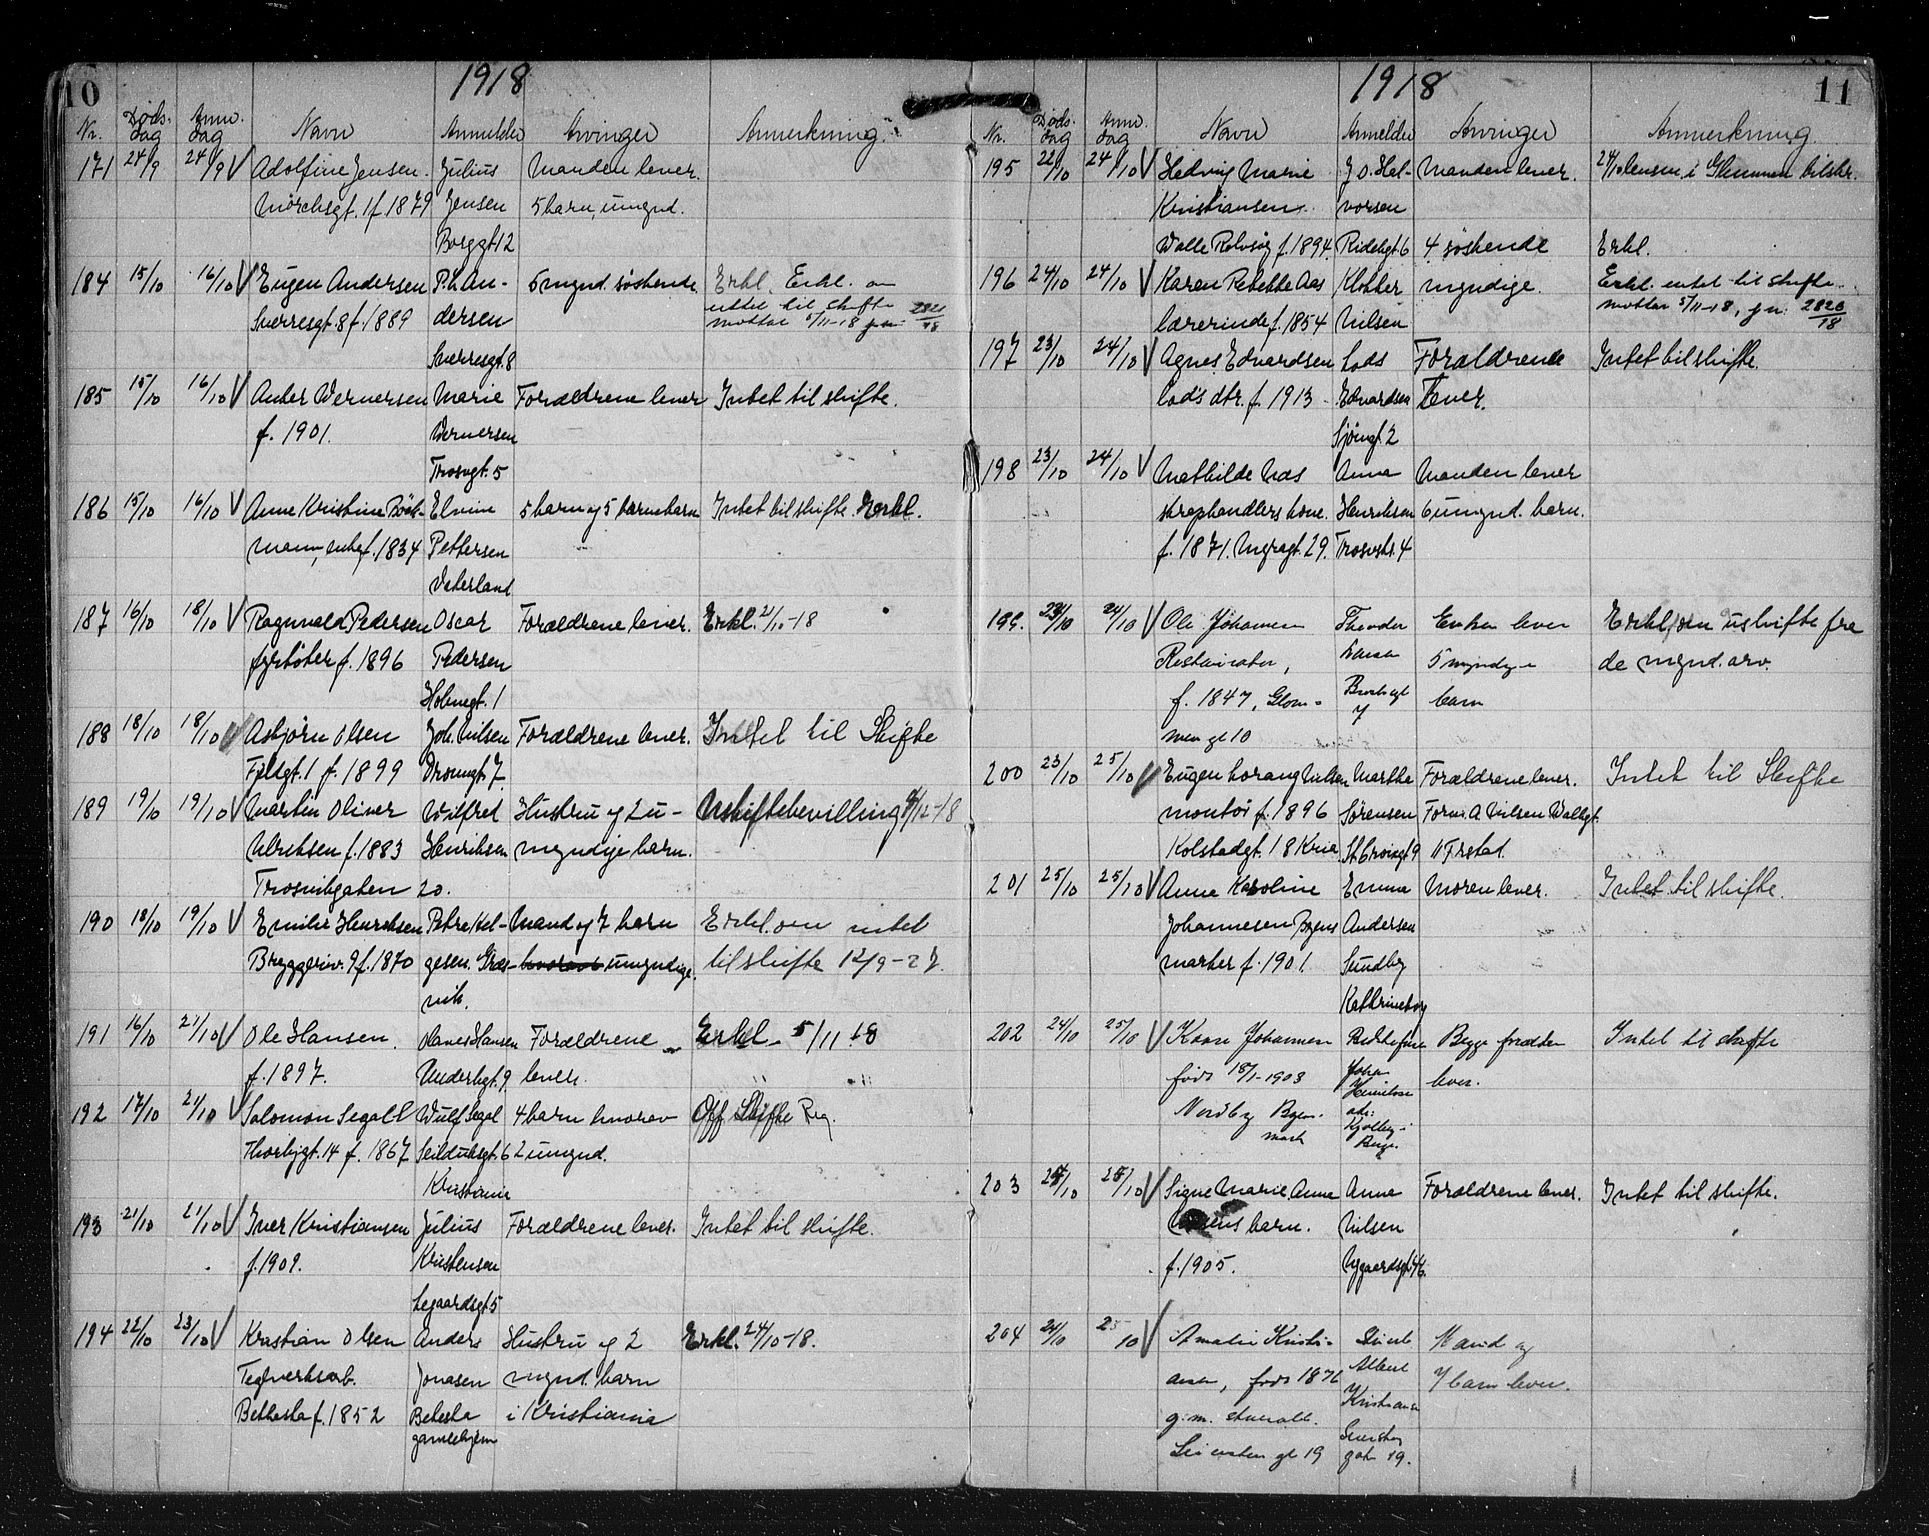 10
1918
Nr. Døds-dag Anm. dag Navn Anmelder Arvinger Anmerkning.
171 24/9 24/9 V Adolfine Jensen. Julius Manden lever.
Mørchsgt. 1 f. 1879 Jensen 5 barn, umynd.
Borggt 12
184 15/10 16/10 V Eugen Andersen P.L. An- 5 mynd. søskende Erkl. Erkl. om
Sverresgt. 8 f. 1889 dersen intet til skifte
mottat 5/11-18 jn. 2821/18
Sverresgt. 8
185 15/10 16/10 V Anker Wernersen Marie Forældrene lever Intet til skifte.
f. 1901. Wernersen
Trosvgt. 5
186 15/10 16/10 V Anne Kristine Böck- Elvine 5 barn og 5 barnebarn Intet til skifte. Erkl.
mann, enke f. 1834 Pettersen
Vaterland
187 16/10 18/10 V Ragnvald Pedersen Oscar Forældrene lever. Erkl. 21/10-18
fyrbøter f. 1896 Pedersen
Holmegt. 1
188 18/10 18/10 V Asbjørn Olsen Joh. Nilsen Forældrene lever. Intet til Skifte
Fjeldgt. 1 f. 1899 7
189 19/10 19/10 V Martin Oliver Wilfred Hustru og 2 u- Uskiftebevilling 9/12-18
Ulriksen f. 1883 Henriksen myndige barn.
Trosvikgaten 20.
190 18/10 19/10 V Emilie Henriksen Petra Hel- Mand og 7 barn Erkl. om intet
Bryggeriv. 9 f. 1870 gesen. Græs- hvorav umyndige. til skifte 12/9-27.
vik.
191 16/10 21/10 V Ole Hansen. Hansen Forældrene Erkl. 5/11 18
f. 1897. 9. lever.
192 17/10 21/10 V Salomon Segall Wulf Segal 4 barn hvorav Off Skifte Reg.
Thorbjgt. 14 f. 1867 Seilduksgt. 6 2 umynd.
Kristiania
193 21/10 21/10 V Iver Kristiansen Julius Forældrene lever. Intet til skifte.
f. 1909. Kristensen
Legaardsgt 5
194 22/10 23/10 V Kristian Olsen Anders Hustru og 2 Erkl. 24/10-18.
Teglverksarb. Jonasen mynd. barn
Bethesta f. 1852 Betesta i Kristiania
gamlehjem
11
1918
Nr. Døds-dag Anm. dag Navn Anmelder Arvinger Anmerkning
195 22/10 24/10 V Hedvig Marie J. O. Hal- Manden lever. 24/10 lensm. i Glemmen tilskr.
Kristiansen. vorsen
Walle Rolvsøy f. 1894. Ridehgt. 6 4 søskende Erkl.
196 24/10 24/10 V Karen Rebekke Aas Klokker myndige. Erkl. intet til skifte.
lærerinde f. 1854 Nilsen mottat 5/11-18, jn. 2820/18
197 23/10 24/10 V Agnes Edvardsen Lods Forældrene Intet til skifte.
lods dtr. f. 1913 Edvardsen lever.
Sjømgt. 2
198 23/10 24/10 V Mathilde Næs Anna Manden lever
skraphandlers kone. Henriksen 6 umynd. barn.
f. 1871. Nygagt. 29. Trosvikst. 4
199. 23/10 24/10 V Ole Johansen Theodor Enken lever Erkl. om uskifte fra
Restauratør, Larsen 5 myndige de mynd. arv.
f. 1847, Glom- 7 barn
mengt 10
200 23/10 25/10 V Eugen Lorang Nilsen Marthe Forældrene lever. Intet til Skifte
montør f. 1896 Sørensen Form. A. Nilsen Wallegt.
Kolstadgt. 18 Kria St. Croixgt 9 11 Frstad.
201 25/10 25/10 V Anna Karoline Emma Moren lever. Intet til skifte.
Johannesen Byens Andersen
marker f. 1901. Sundby
Kathrineborg
202 24/10 25/10 V Kaare Johannesen Bedstefar Begge forældre Intet til skifte
født 18/1-1903 Johan lever.
Nordby Byens Henriksen
mark adr:
Kjølberg-
203 24/10 25/10 V Signe Marie Anna Anna Forældrene lever. Intet til skifte.
barn. Nilsen
f. 1905. Nygaardsgt. 46.
204 24/10 25/10 V Amalie Kristi- Mand og
ansen, født 1876 Albert 7 barn lever.
g. m. Kristiansen
gt 19 gate 19.